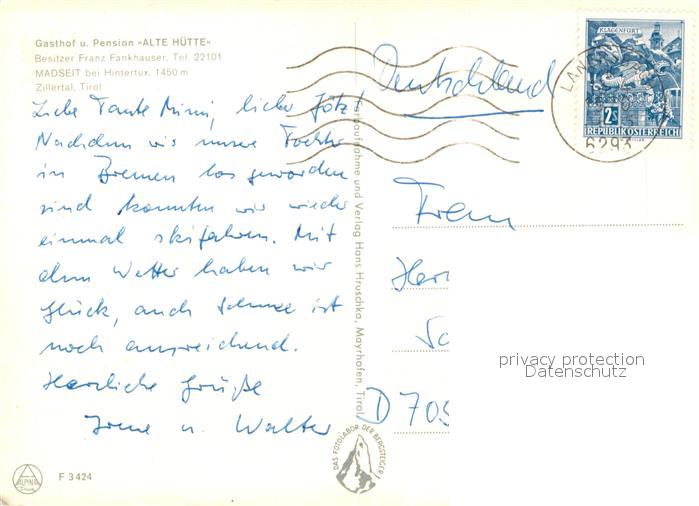 Gasthof u. Pension »ALTE HÜTTE«
Besitzer Franz Fankhauser, Tel. 22101
MADSEIT bei Hintertux, 1450 m
Zillertal, Tirol
Liebe Tante Mimi, lieber Götz!
Nachdem wir unsere Tochter
in Bremen los geworden
sind konnten wir wieder
einmal skifahren. Mit
dem Wetter haben wir
Glück, auch Schnee ist
noch ausreichend.
Herzliche Grüße
Irene u. Walter
F 3424
ALPINA
Farbaufnahme und Verlag Hans Hruschka, Mayrhofen, Tirol
DAS FOTOLABOR DER BERGSTEIGER
Deutschland
KLAGENFURT
2S
REPUBLIK ÖSTERREICH
6293
Frau
D 705
privacy protection
Datenschutz